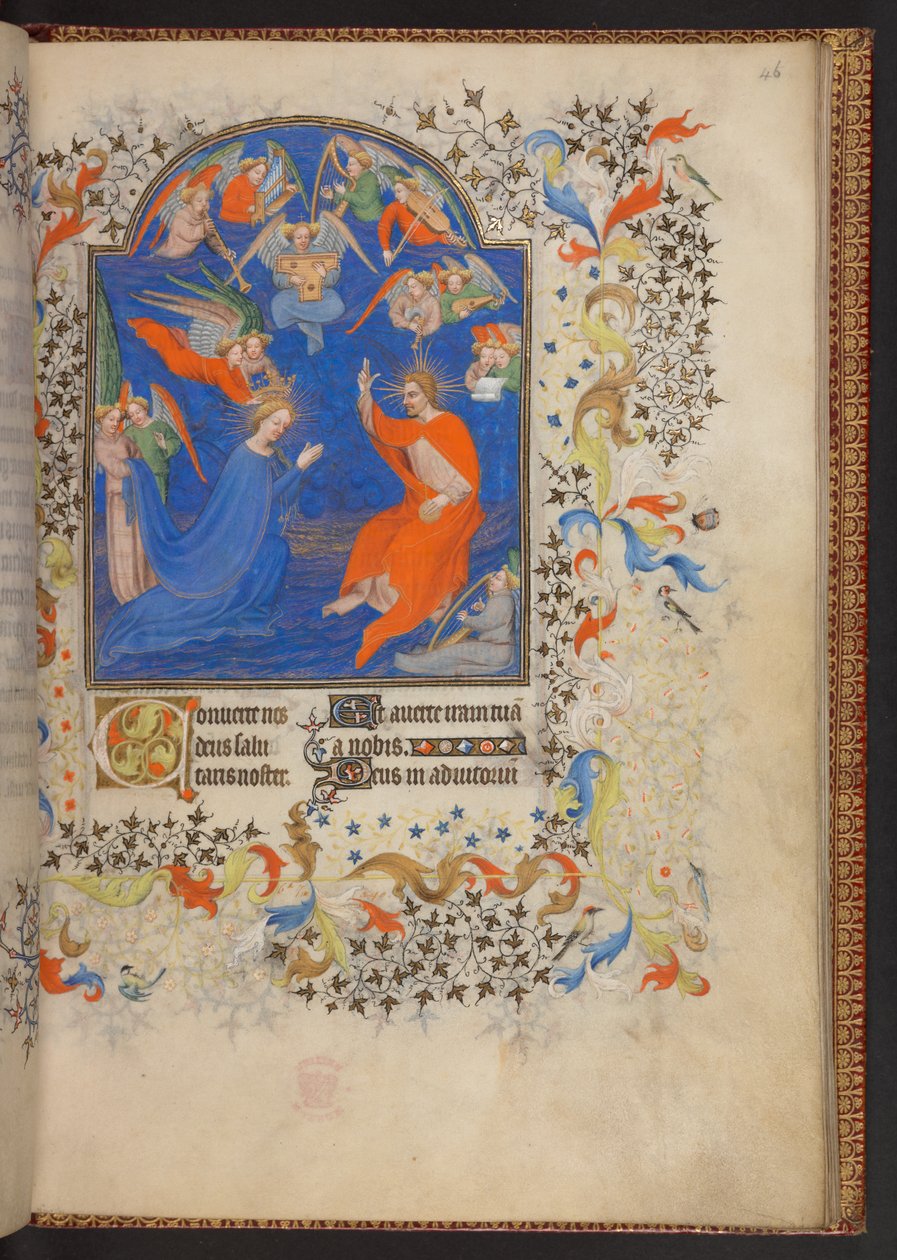 46
Conuerte nos
deus salu
taris noster.
Et auerte iram tuã
a nobis.
Deus in adiutoriũ